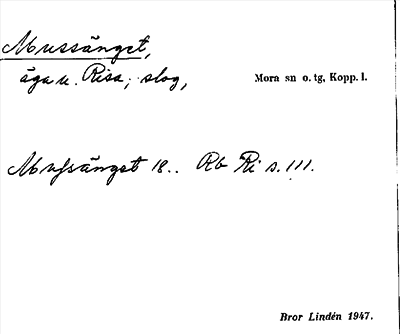 Mussänget,
äga u. Risa; slog,
Mora sn o. tg, Kopp. l.
Mussänget 18.. Rb Ri s. 111.
Bror Lindén 1947.